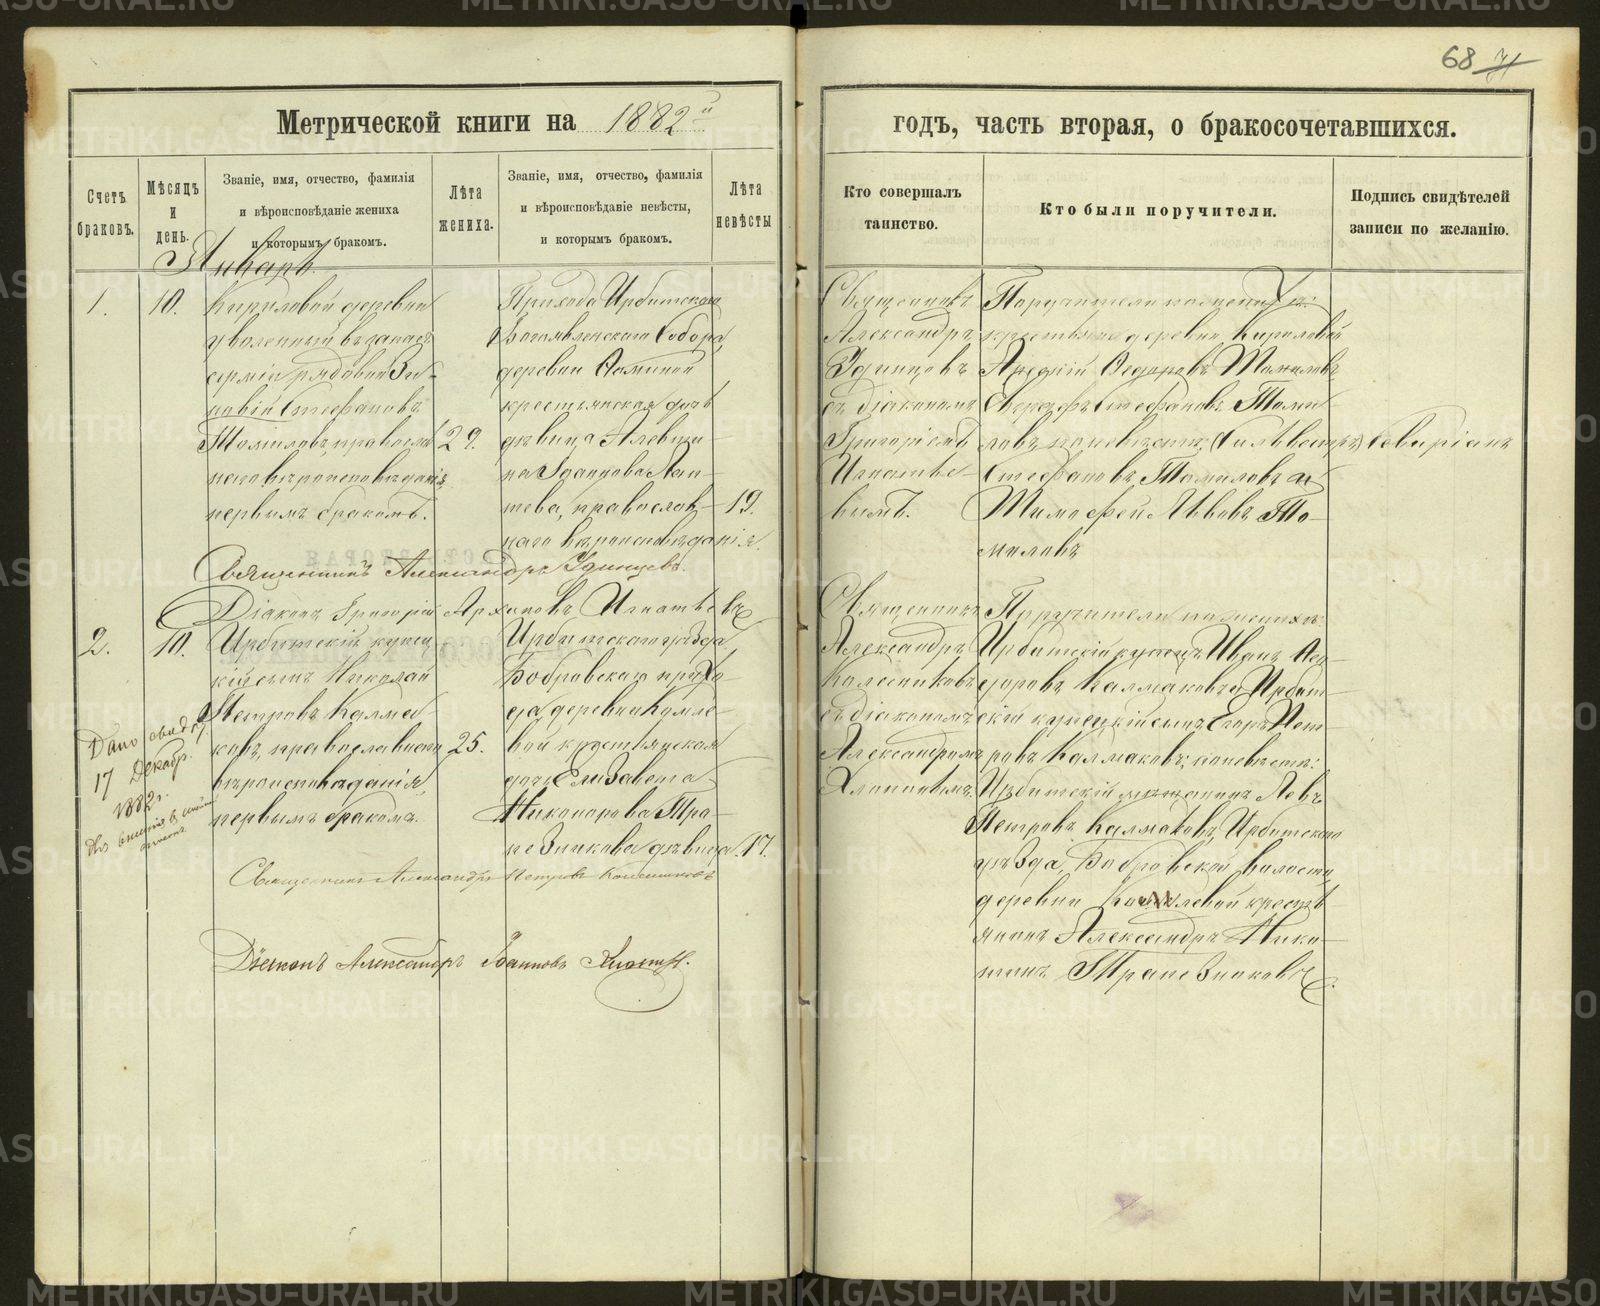 68 71
Метрической книги на 1882й
годъ, часть вторая, о бракосочетавшихся.
Счетъ браковъ.
Мѣсяцъ и день.
Званіе, имя, отчество, фамилія и вѣроисповѣданіе жениха и которымъ бракомъ.
Лѣта жениха.
Званіе, имя, отчество, фамилія и вѣроисповѣданіе невѣсты, и которымъ бракомъ.
Лѣта невѣсты
Кто совершалъ таинство.
Кто были поручители.
Подпись свидѣтелей записи по желанію.
Январь.
1.
10.
Кириловой деревни
уволенный въ запасъ
арміи рядовой Зи-
новій Стефановъ
Томиловъ, православ-
наго вѣроисповѣданія,
первымъ бракомъ.
29.
Прихода Ирбитскаго
Богоявленскаго Собора,
деревни Фоминой
крестьянская дочь
дѣвица Алевти-
на Іоаннова Лап-
тева, православ-
наго вѣроисповѣданія.
19.
Священникъ
Александръ
Удинцовъ
съ діакономъ
Григоріемъ
Игнатье-
вымъ.
Поручители по женихѣ:
крестьяне деревни Кириловой
Федоровъ Томиловъ,
Стефановъ Томи-
ловъ; по невѣстѣ: Сильвестръ Севиріанъ
Стефановъ Томиловъ и
Тимофей Львовъ То-
миловъ
Священникъ Александръ Удинцевъ.
Діаконъ Григорій Игнатьевъ
2.
10.
Ирбитскій купец-
кій сынъ Николай
Петровъ Калма-
ковъ, православнаго
вѣроисповѣданія,
первымъ бракомъ.
25.
Ирбитскаго уѣзда
Бобровскаго прихо-
да деревни Кумле-
вой крестьянская
дочь Елизавета
Никонорова Тра-
пезникова дѣвица.
17.
Священникъ
Александръ
Колесниковъ
съ діакономъ
Александромъ
Хлопотовымъ.
Поручители по женихѣ:
Ирбитскій купецъ Иванъ Фео-
доровъ Калмаковъ и Ирбит-
скій купецкій сынъ Егоръ Пет-
ровъ Калмаковъ; по невѣстѣ:
Ирбитскій мѣщанинъ Левъ
Петровъ Калмаковъ, Ирбитскаго
уѣзда, Бобровской волости,
деревни Кумлевой кресть-
янинъ Александръ Ники-
тинъ Трапезниковъ.
Дано свид.
17 Декабр.
1882 г.
Священникъ Александръ Петровъ Колесниковъ
Діаконъ Александръ Іоанновъ
METRIKI.GASO-URAL.RU